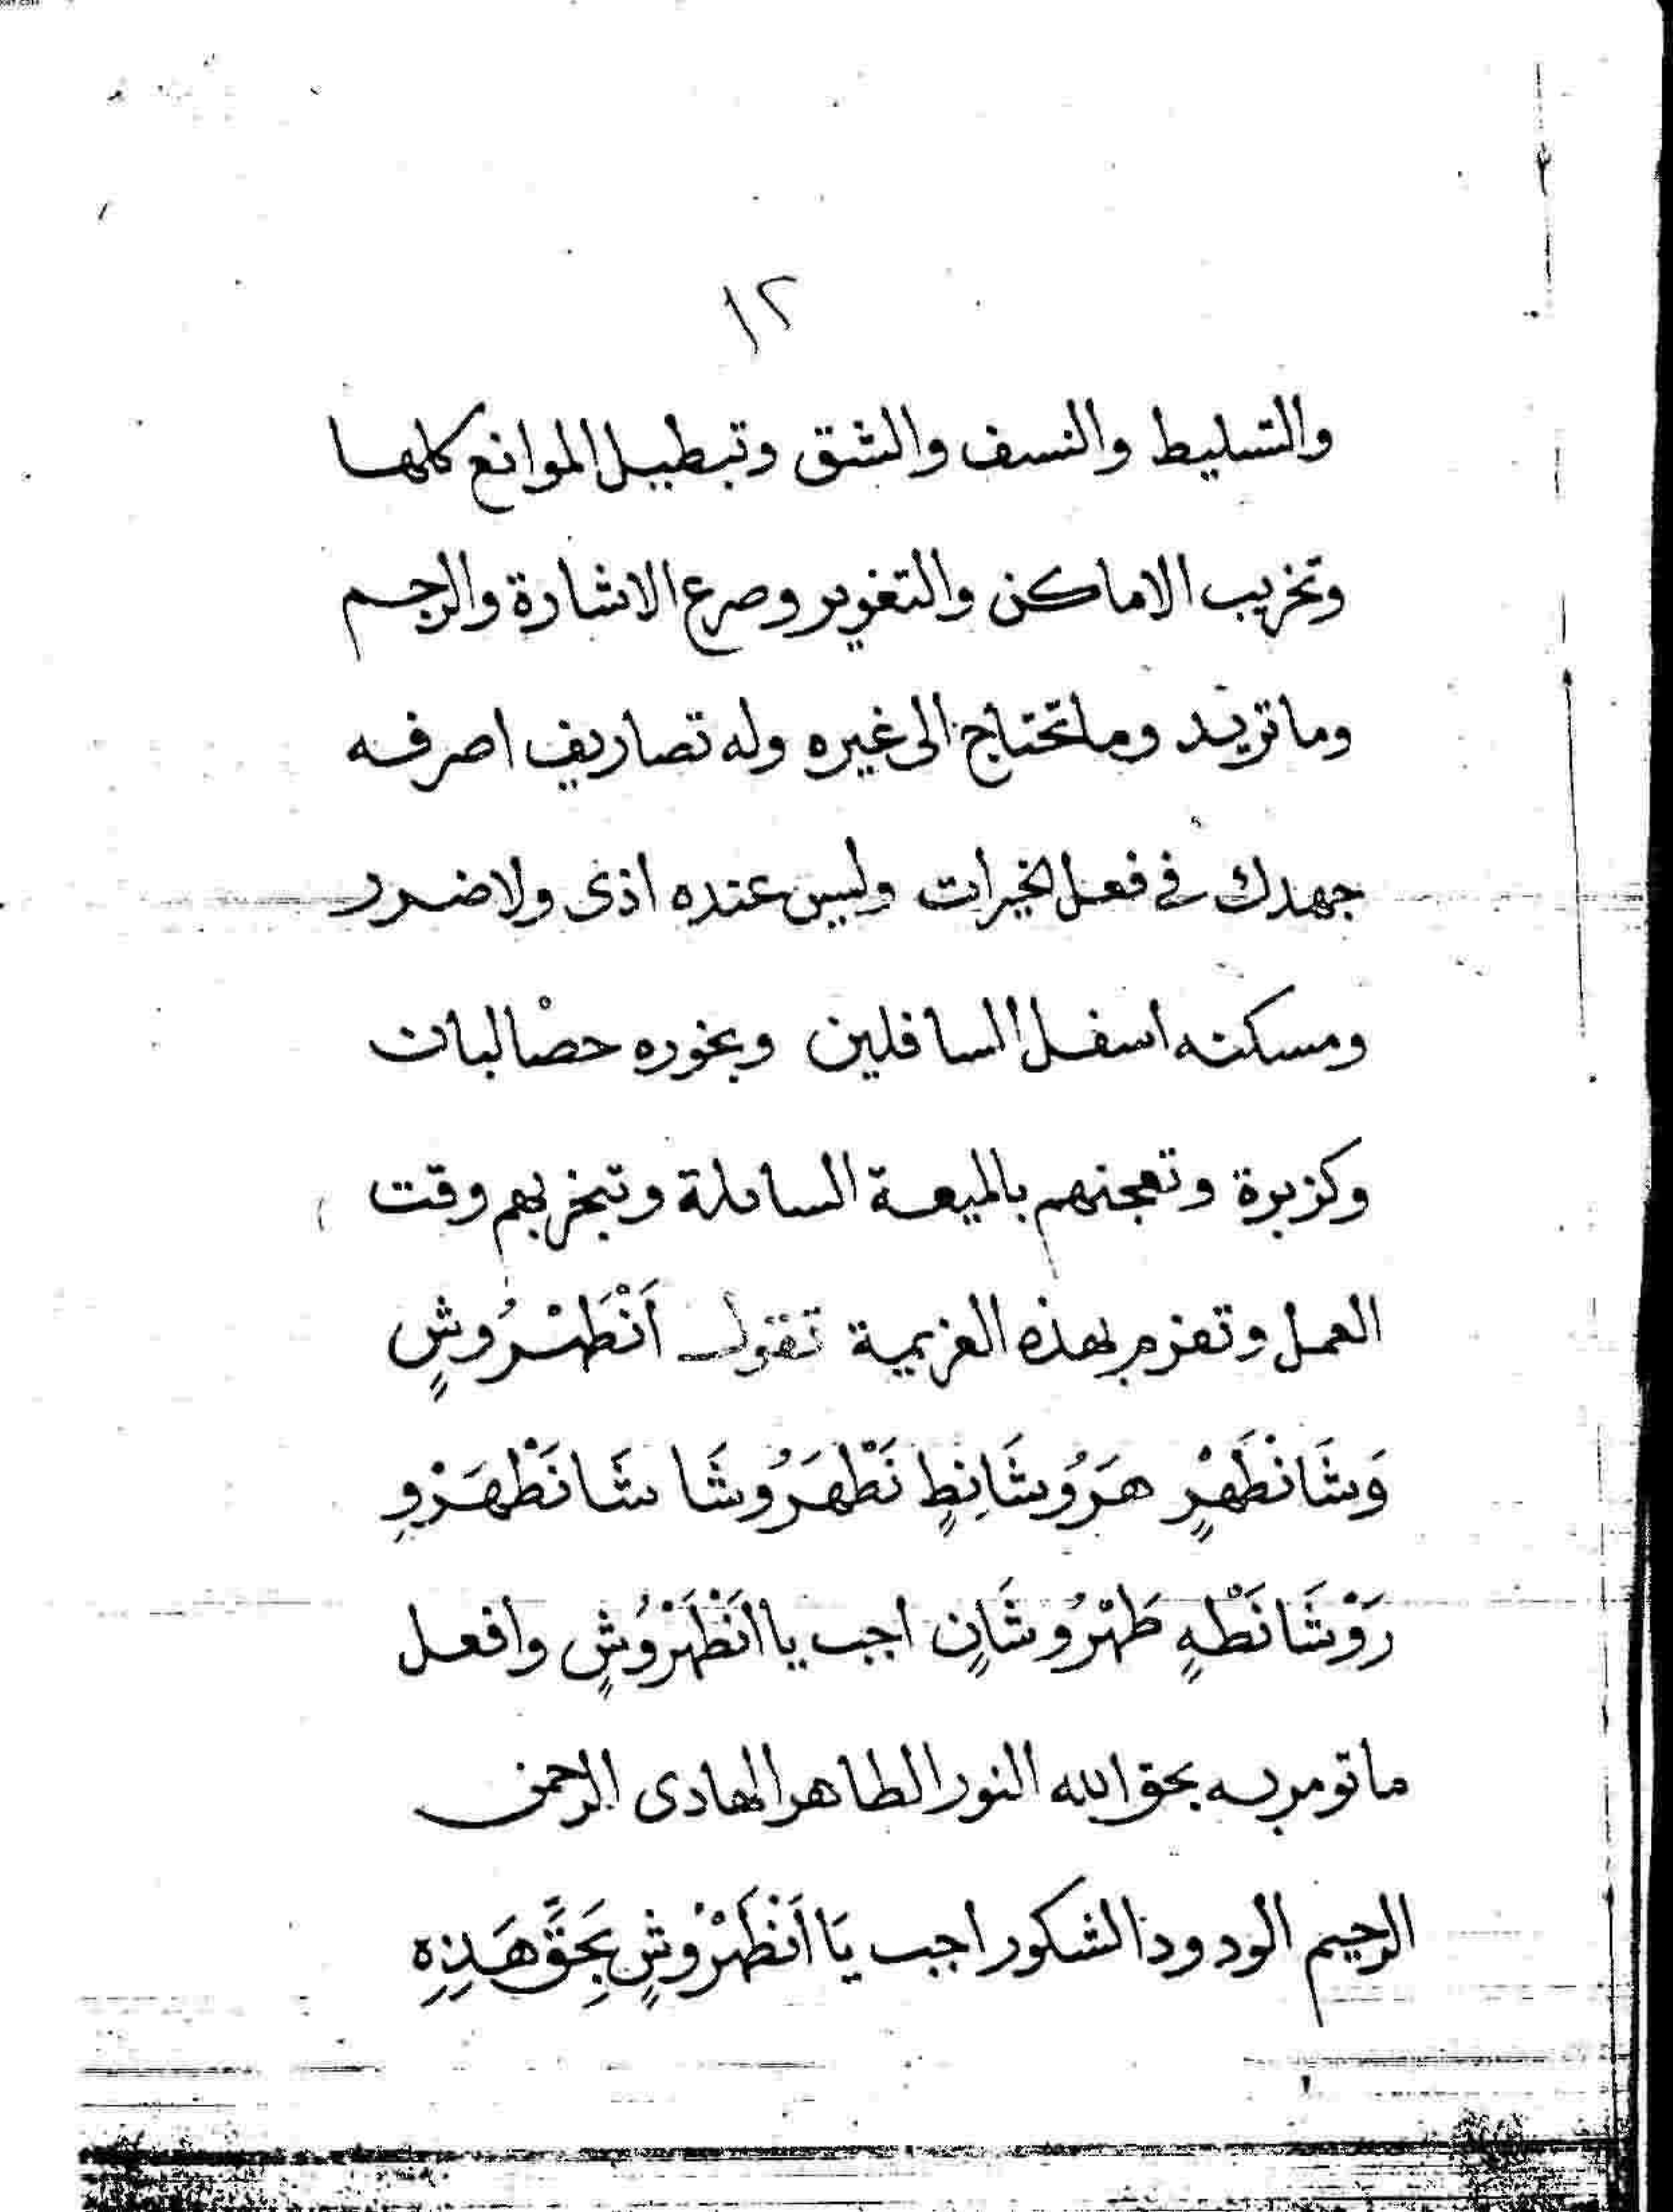 ١٢
والتسليط والنسف والشق وتبطيل الموانع كلها
وتخريب الاماكن والتغوير وصرع الاشارة والرجم
وما تريد وما تحتاج الى غيره وله تصاريف اصرفه
جهدك في فعل الخيرات وليس عنده اذى ولا ضرر
ومسكنه اسفل السافلين وبخوره حصالبان
وكزبرة وتعجنهم بالميعة السائلة وتبخر بهم وقت
العمل وتعزم بهذه العزيمة تقول اَنْظَهْرُوشٍ
وَشَانْظَهْرٍ هَرُوشَانِطٍ نَظْهَرُوشَا شَانَظْهَرْوِ
رَوْشَانَظْهٍ طَهْرُوشَانٍ اجب يا اَنْظَهْرُوُشٍ وافعل
ما تومر به بحق الله النور الطاهر الهادى الرحمن
الرحيم الودود الشكور اجب يَا اَنْظَهْرُوْشٍ بِحَقِّ هَذِهِ